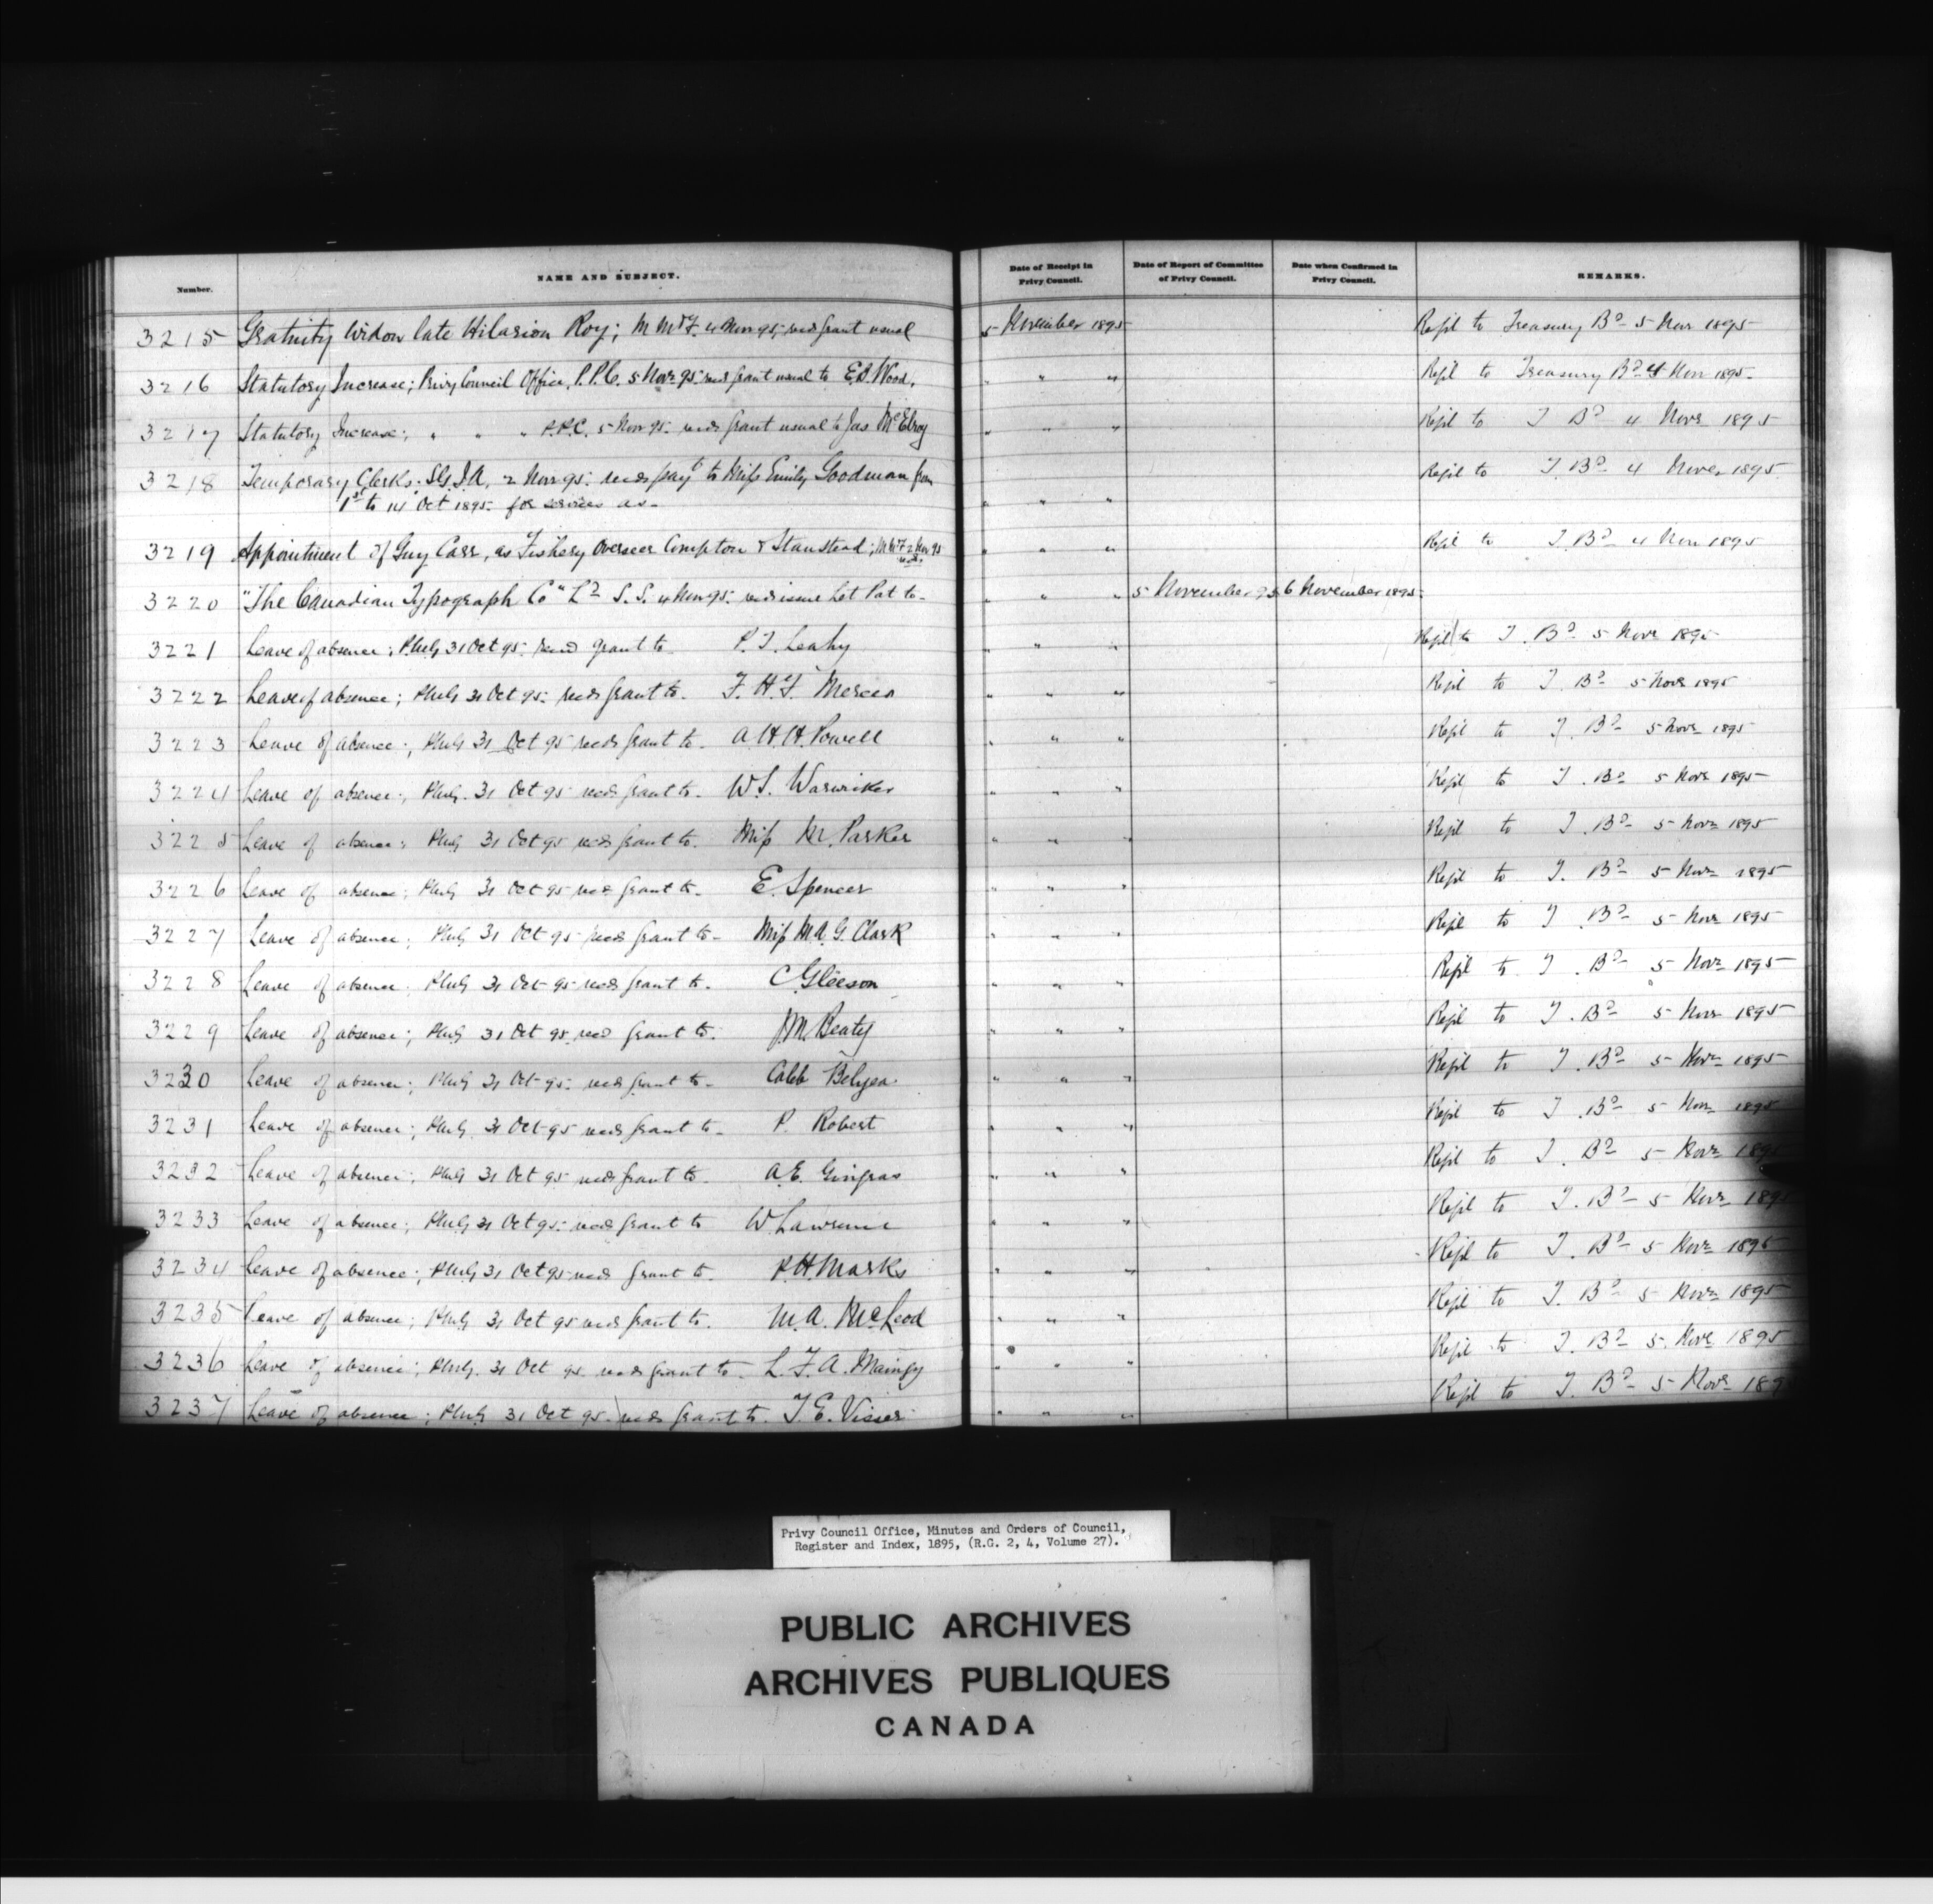 Number. NAME AND SUBJECT. Date of Receipt in Privy Council. Date of Report of Committee of Privy Council. Date when Confirmed in Privy Council. REMARKS.
3215 Gratuity Widow late Hilarion Roy; M M & F. 4 Nov 95; recds grant usual 5 November 1895 Refd to Treasury Bd 5 Nov 1895
3216 Statutory Increase; Privy Council Office, P.P.C. 5 Nov 95. recds grant usual to E.D. Wood. " " " Refd to Treasury Bd 4 Nov 1895
3217 Statutory Increase; " " " P.P.C. 5 Nov 95. recds grant usual to Jas McElroy " " " Refd to T Bd 4 Novr 1895
3218 Temporary Clerks. S.G.I.A. 2 Nov 95. recds payt to Miss Emily Goodman from Refd to T. Bd 4 Nover 1895
1st to 14 Oct 1895. for services as - " " "
3219 Appointment of Guy Carr, as Fishery Overseer Compton & Stanstead; M M & F 2 Nov 95 recds. " " " Refd to T. Bd 4 Nov 1895
3220 "The Canadian Typograph Co" Ld S.S. 4 Nov 95. recds issue Let Pat to - " " " 5 November 95 6 November 1895
3221 Leave of absence; PMG 31 Oct 95. recd grant to P. J. Leahy " " " Refd to T. Bd 5 Novr 1895
3222 Leave of absence; PMG 31 Oct 95. recds grant to. F. H. F. Mercer " " " Refd to T. Bd 5 Novr 1895
3223 Leave of absence; PMG 31 Oct 95 recds grant to. A. H. H. Powell " " " Refd to T. Bd 5 Novr 1895
3224 Leave of absence; PMG. 31 Oct 95 recds grant to. W S. Warwiker " " " Refd to T. Bd 5 Novr 1895
3225 Leave of absence; PMG 31 Oct 95 recds grant to. Miss M. Parker " " " Refd to T. Bd 5 Novr 1895
3226 Leave of absence; PMG 31 Oct 95 recd grant to. E. Spencer " " " Refd to T. Bd 5 Novr 1895
3227 Leave of absence; PMG 31 Oct 95 recds grant to - Miss M A. G. Clark " " " Refd to T. Bd 5 Novr 1895
3228 Leave of absence. PMG 31 Oct 95 recds grant to. C Gleeson " " " Refd to T. Bd 5 Novr 1895
3229 Leave of absence; PMG 31 Oct 95. recd grant to. J. M. Beaty " " " Refd to T. Bd 5 Novr 1895
3230 Leave of absence; PMG 31 Oct 95. recds grant to - Caleb Belyea " " " Refd to T. Bd 5 Novr 1895
3231 Leave of absence; PMG. 31 Oct 95 recds grant to - P. Robert " " " Refd to T. Bd 5 Novr 1895
3232 Leave of absence; PMG 31 Oct 95 recds grant to. A. E. Gingras " " " Refd to T. Bd 5 Novr 1895
3233 Leave of absence; PMG 31 Oct 95. recds grant to W Lawrence " " " Refd to T. Bd 5 Novr 1895
3234 Leave of absence; PMG 31 Oct 95 recds grant to. P. H Marks " " " Refd to T. Bd 5 Novr 1895
3235 Leave of absence; PMG 31 Oct 95 recds grant to. M. A. McLeod " " " Refd to T. Bd 5 Novr 1895
3236 Leave of absence; PMG. 31 Oct 95 recds grant to - L. F. A. Maingy " " " Refd to T. Bd 5. Novr 1895
3237 Leave of absence; PMG 31 Oct 95. recds grant to. T. E. Visser " " " Refd to T. Bd 5 Novr 189
Privy Council Office, Minutes and Orders of Council,
Register and Index, 1895, (R.G. 2, 4, Volume 27).
PUBLIC ARCHIVES
ARCHIVES PUBLIQUES
CANADA